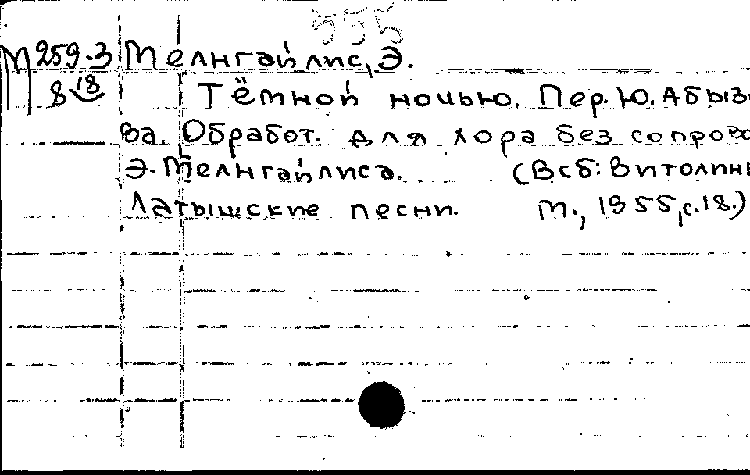 555
М 259.3 Мелнгайлис, Э.
8 18 Тёмной ночью. Пер. Ю. Абыз
ва. Обработ. для хора без сопрово
Э. Мелнгайлиса. (В сб: Витолинь
Латышские песни. М., 1955, с.18.)